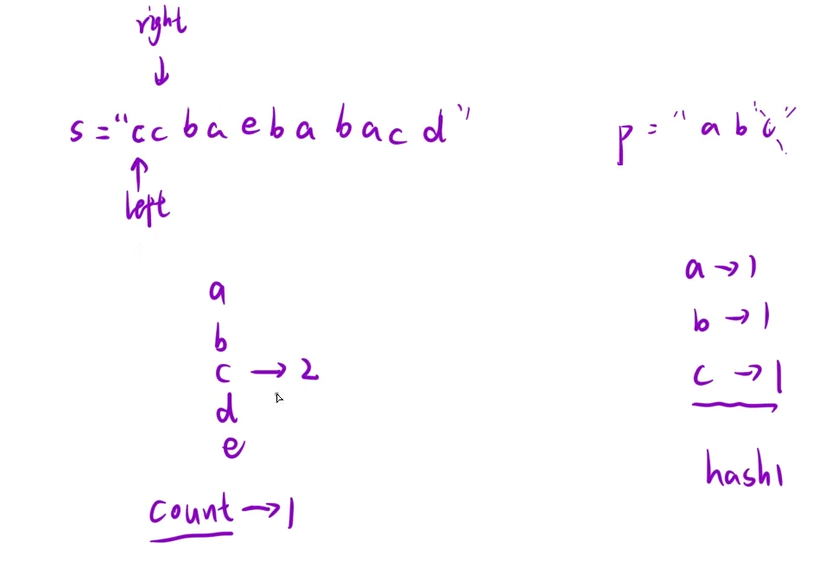 right
↓
s = "ccbaebabacd" p = "abc"
↑
left
a a → 1
b b → 1
c → 2 c → 1
d
e
hash1
count → 1